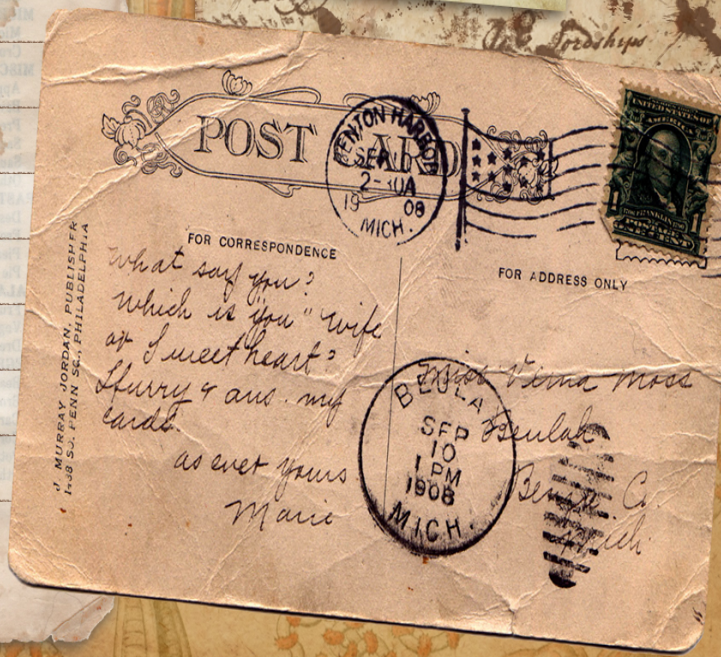 Lordships
POST CARD
BENTON HARBOR
SEP
2-30A
1908
MICH.
UNITED STATES OF
AMERICA
1 1
FRANKLIN
FOR CORRESPONDENCE
FOR ADDRESS ONLY
J. MURRAY JORDAN, PUBLISHER
1438 SO. PENN SQ., PHILADELPHIA
What say you?
Which is "you" wife
or Sweetheart?
Hurry & ans. my
cards.
as ever yours
Marie
BEULAH
SEP
10
1 PM
1908
MICH.
Miss Verna Moss
Beulah
Benzie Co.
Mich